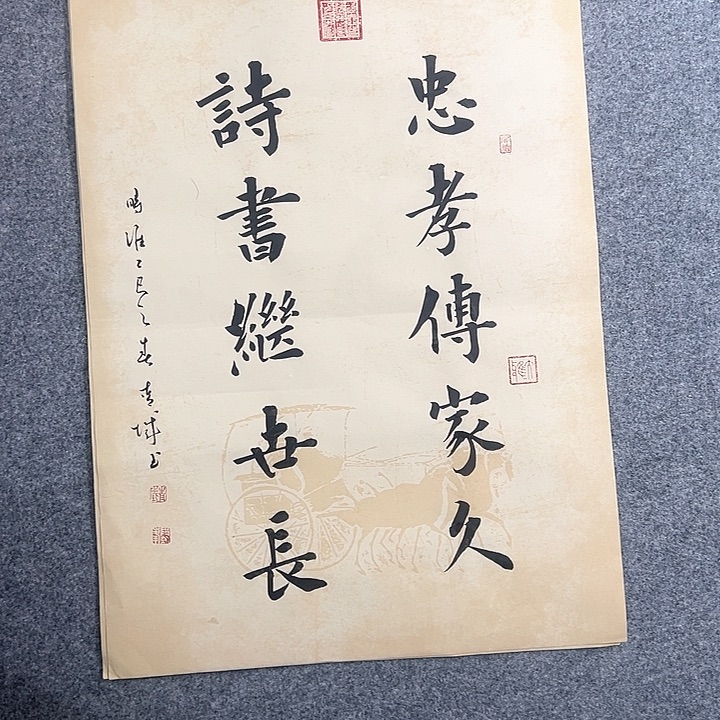 忠孝傳家久
詩書繼世長
時維乙巳之春青城书